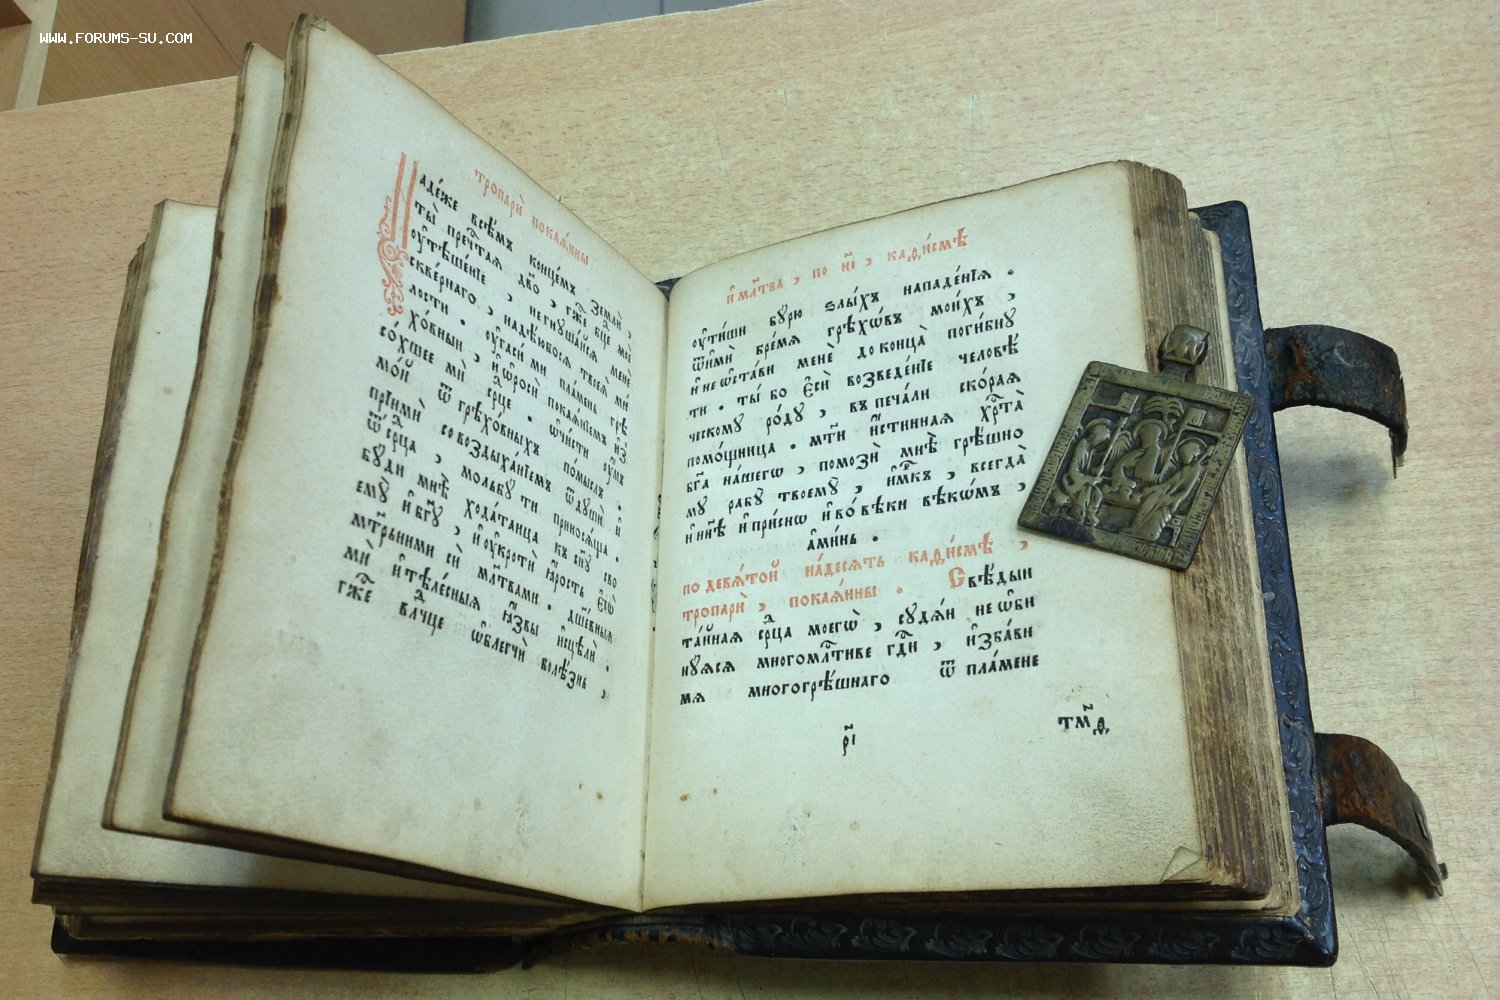 WWW.FORUMS-SU.COM
тропарѝ покаѧ́нны
Наде́же всѣ́мъ конце́мъ землѝ,
ты̀ пречⷭ҇таѧ дв҃о, гж҃е бц҃е моѐ
ᲂу҆тѣше́нїе, негнуша́йсѧ менѐ
скве́рнаго, надѣ́юбосѧ твое́й ми
лости. ᲂу҆гасѝ ми пла́мень грѣ
хо́вныи, и҆ ѡ҆росѝ покаѧ́нїемъ и҆з
со́хшее мѝ ср҃це. ѡ҆чи́сти ᲂу҆́мъ
мо́й ѿ грѣхо́вныхъ по́мыслъ.
прїимѝ со воздыха́нїемъ ѿ душѝ и҆
ѿ ср҃ца, мольбу ти приносѧ́ща.
бу́ди мнѣ̀ хода́таица къ сн҃у сво
ему̀ и҆ бг҃у, и҆ ᲂу҆кротѝ ꙗ҆́рость є҆гѡ̀
мт҃рьними сѝ мл҃твами. дш҃е́вныѧ
мѝ и҆ тѣле́сныѧ ꙗ҆́звы и҆сцѣлѝ.
гж҃е влⷣчце ѡ҆блегчѝ болѣ́знь,
и҆ мл҃тва, по и҃і, каѳи́смѣ
ᲂу҆ти́ши бу́рю ѕлы́хъ нападе́нїѧ.
ѿимѝ бре́мѧ грѣхѡ́въ мои́хъ,
и҆ не ѡ҆ста́ви менѐ до конца̀ поги́бну
ти. ты́ бо є҆сѝ возведе́нїе человѣ́
ческому ро́ду, въ печа́ли ско́раѧ
помо́щница. мт҃и и҆́стиннаѧ хрⷭ҇та̀
бг҃а на́шегѡ, помозѝ мнѣ̀ грѣ́шно
му рабу̀ твоему̀, и҆м҃къ, всегда̀
и҆ нн҃ѣ и҆ при́снѡ и҆ во́ вѣки вѣкѡ́мъ,
а҆ми́нь.
по девѧ́той на́десѧть каѳи́смѣ,
тропарѝ, покаѧ́нны. Свѣ́дыи
та́йнаѧ ср҃ца моегѡ̀, судѧ́и не ѡ҆би
нуѧсѧ многомлⷭ҇тиве гдⷭ҇и, и҆зба́ви
мѧ многогрѣ́шнаго ѿ пла́мене
р҃і
тм҃д